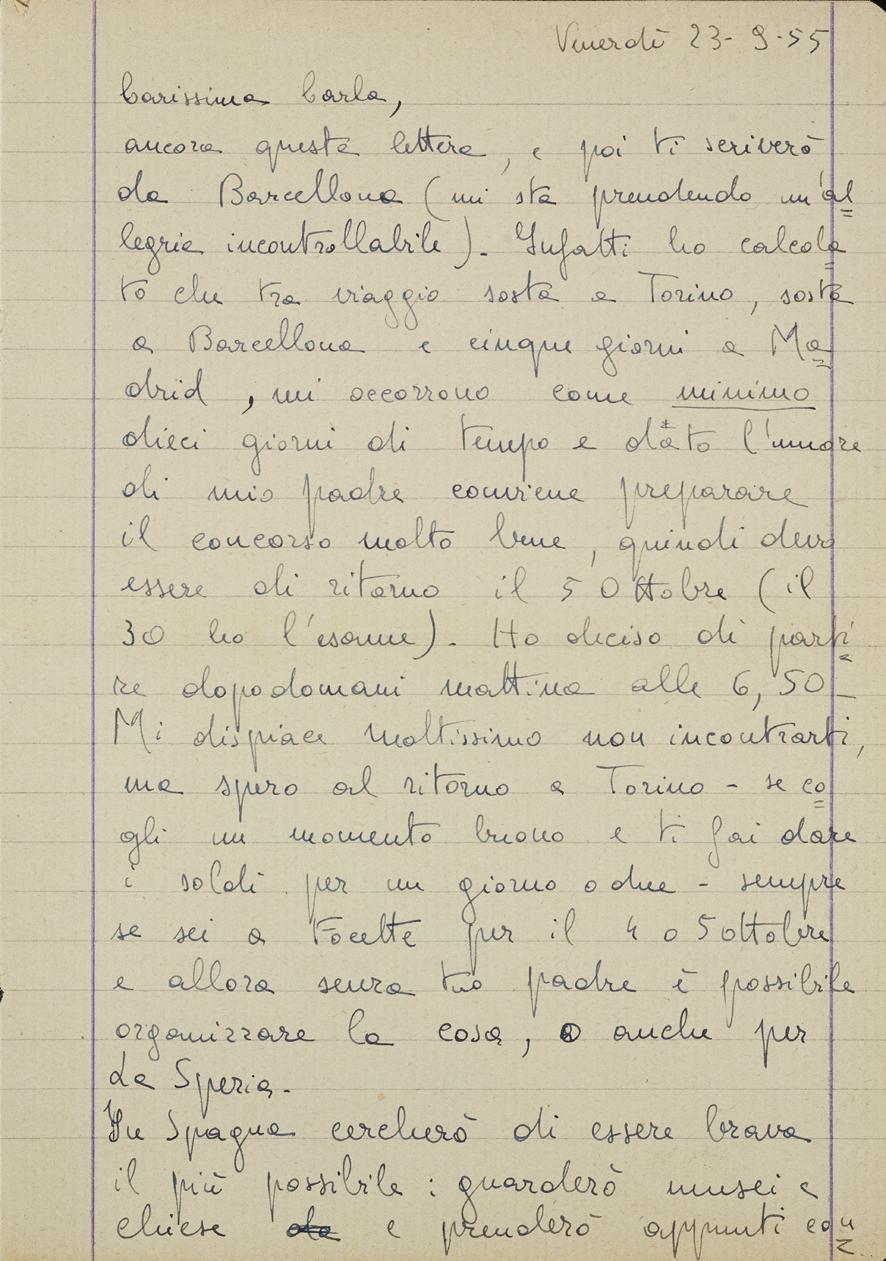 Venerdì 23-9-55
Carissima Carla,
ancora questa lettera, e poi ti scriverò
da Barcellona (mi sta prendendo un'al=
legria incontrollabile). Infatti ho calcola=
to che tra viaggio sosta a Torino, sosta
a Barcellona e cinque giorni a Ma=
drid, mi occorrono come minimo
dieci giorni di tempo e dato l'umore
di mio padre conviene preparare
il concorso molto bene, quindi devo
essere di ritorno il 5 Ottobre (il
30 ho l'esame). Ho deciso di parti=
re dopodomani mattina alle 6,50-
Mi dispiace moltissimo non incontrarti,
ma spero al ritorno a Torino - se co=
gli un momento buono e ti fai dare
i soldi per un giorno o due - sempre
se sei a Focette per il 4 o 5 ottobre
e allora senza tuo padre è possibile
organizzare la cosa, o anche per
La Spezia.
In Spagna cercherò di essere brava
il più possibile: guarderò musei e
chiese e prenderò appunti con=